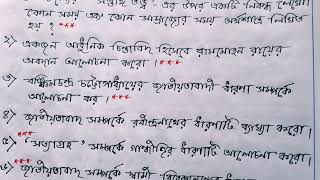 "সপ্তাঙ্গ তত্ত্ব" এর উপর একটি নিবন্ধ লেখো।
কোন সময় এবং কোন সাম্রাজ্যের সময় অর্থশাস্ত্র লিখিত
হয় ? ***
২) একজন আধুনিক চিন্তাবিদ হিসেবে রামমোহন রায়ের
অবদান আলোচনা করো। ***
৩) বঙ্কিমচন্দ্র চট্টোপাধ্যায়ের জাতীয়তাবাদী ধারণা সম্পর্কে
আলোচনা কর। ***
৪) জাতীয়তাবাদ সম্পর্কে রবীন্দ্রনাথের ধারণাটি ব্যাখ্যা করো।
***
৫) 'সত্যাগ্রহ' সম্পর্কে গান্ধীজির ধারণাটি আলোচনা করো।
৬) জাতীয়তাবাদ সম্পর্কে স্বামী